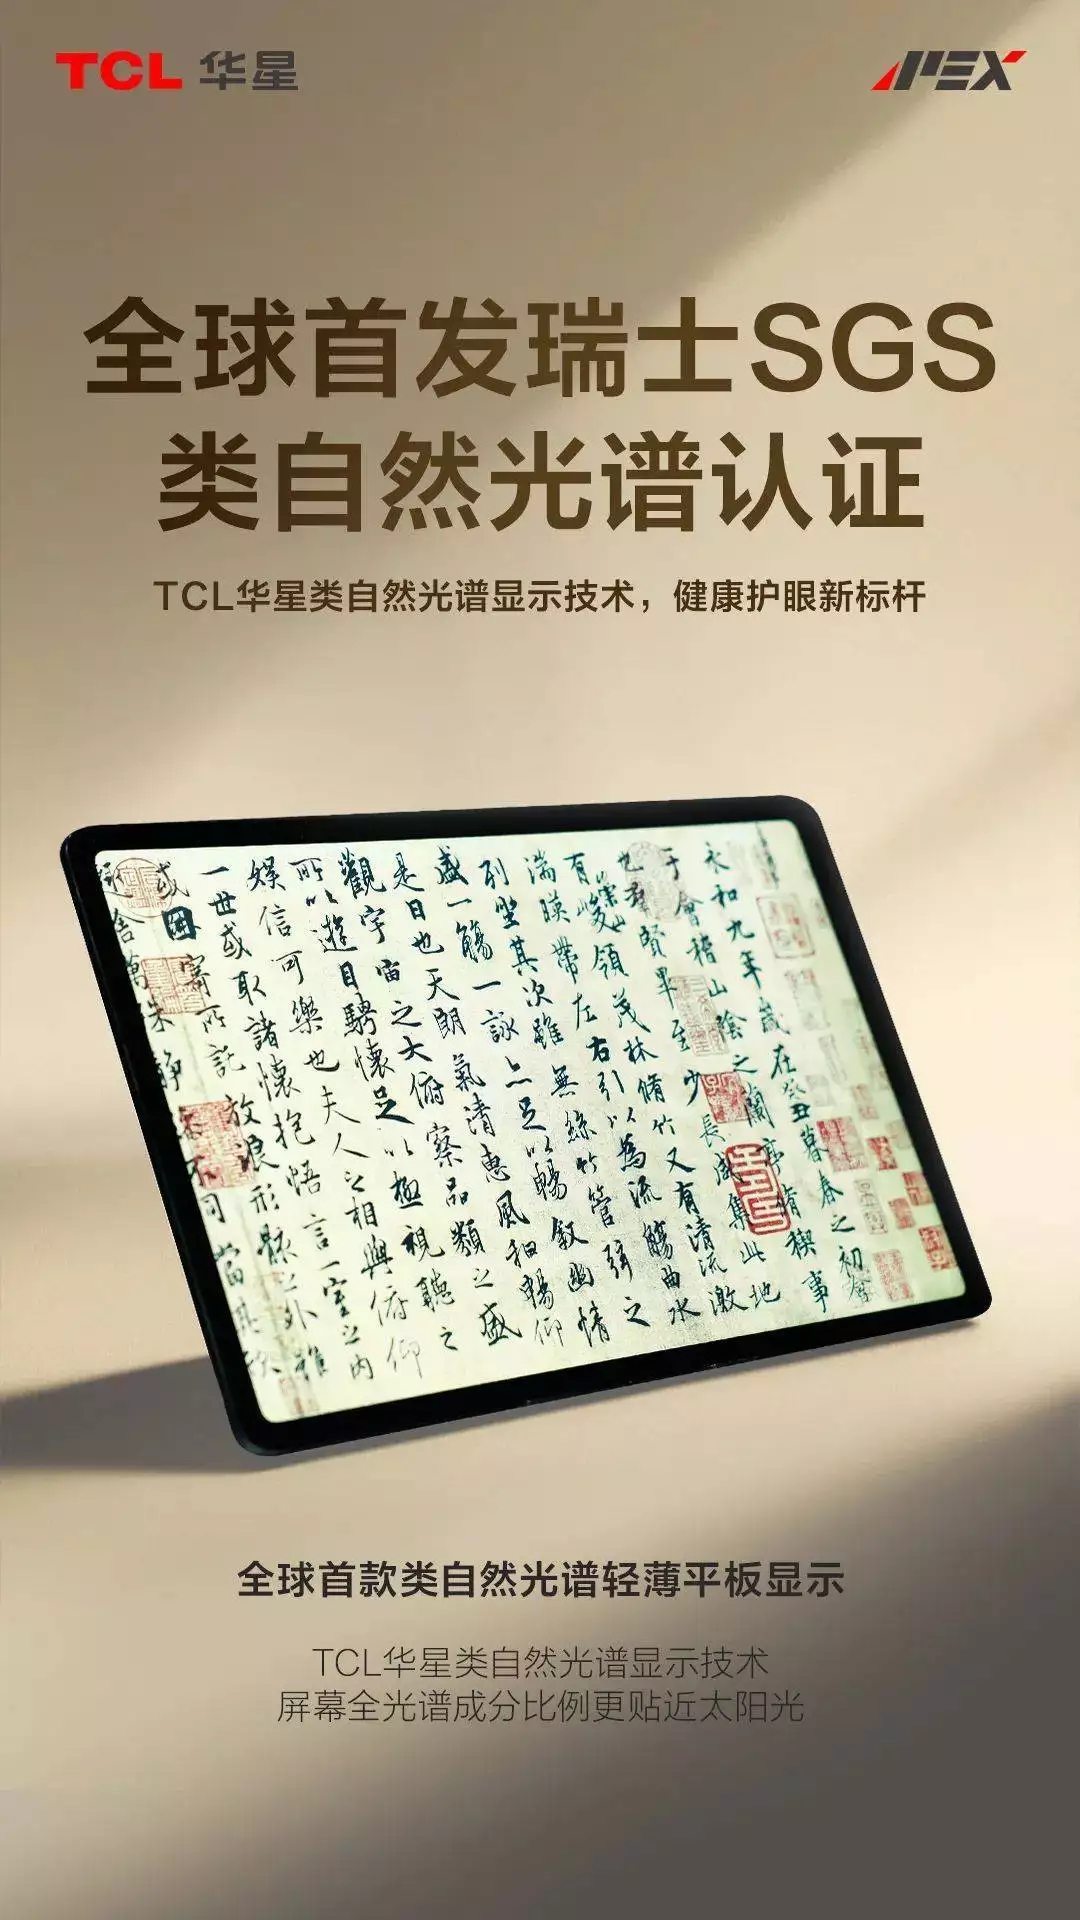 TCL 华星
APEX
全球首发瑞士SGS
类自然光谱认证
TCL华星类自然光谱显示技术，健康护眼新标杆
永和九年歲在癸丑暮春之初會
于會稽山陰之蘭亭脩稧事
也羣賢畢至少長咸集此地
有崇山峻領茂林脩竹又有清流激
湍暎帶左右引以為流觴曲水
列坐其次雖無絲竹管弦之
盛一觴一詠亦足以暢敘幽情
是日也天朗氣清惠風和暢仰
觀宇宙之大俯察品類之盛
所以遊目騁懷足以極視聽之
娛信可樂也夫人之相與俯仰
一世或取諸懷抱悟言一室之內
或因寄所託放浪形骸之外雖
全球首款类自然光谱轻薄平板显示
TCL华星类自然光谱显示技术
屏幕全光谱成分比例更贴近太阳光